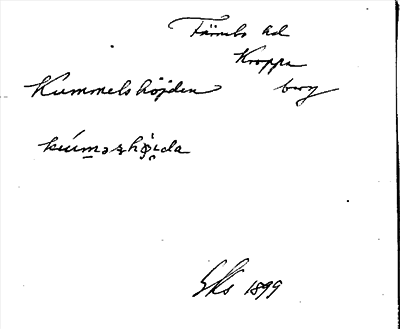 Färnebo hd
Kroppa
Kummelshöjden berg
kúmǝshö̀ida
Eks 1899